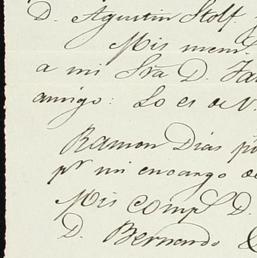 D. Agustin Stolf.
Mis mem.
a mi Sra D. Ja
amigo: Lo es de V.
Ramon Dias p
pr mi encargo de
Mis Comp. D.
D. Bernardo